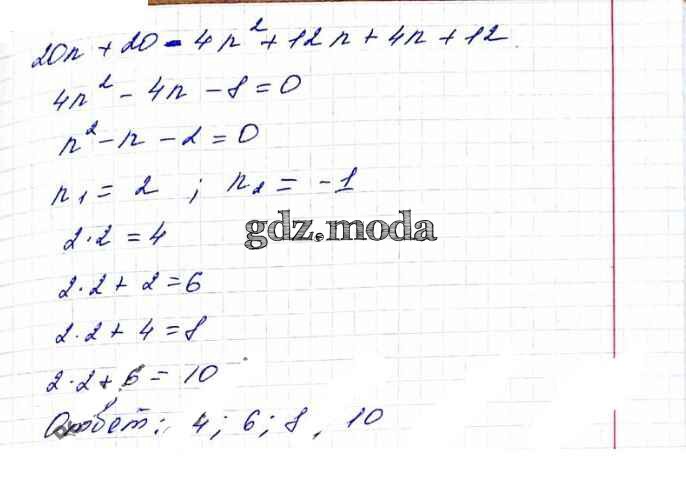 20n + 20 - 4n² + 12n + 4n + 12
4n² - 4n - 8 = 0
n² - n - 2 = 0
n₁ = 2 ; n₂ = -1
2·2 = 4
gdz.moda
2·2 + 2 = 6
2·2 + 4 = 8
2·2 + 6 = 10
Ответ: 4; 6; 8, 10